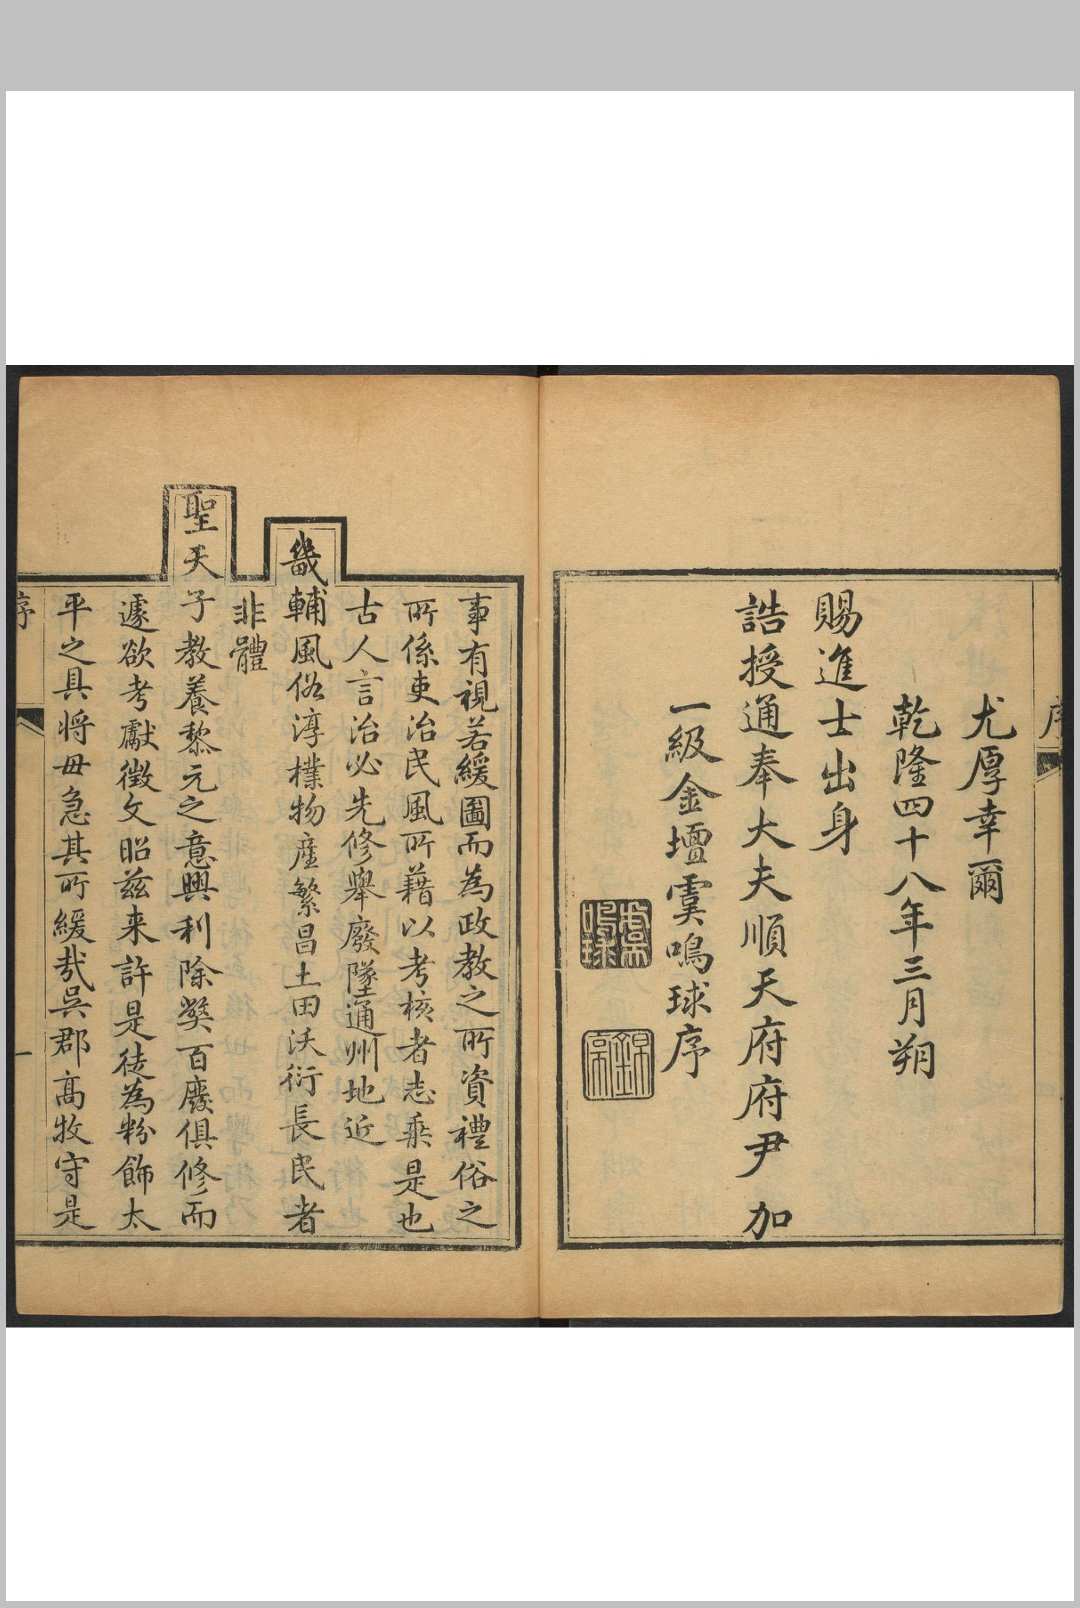 序
尤厚幸爾
乾隆四十八年三月朔
賜進士出身
誥授通奉大夫順天府府尹加
一級金壇虞鳴球序
事有視若緩圖而為政教之所資禮俗之
所係吏治民風所藉以考核者志乘是也
古人言治必先修舉廢墜通州地近
畿輔風俗淳樸物産繁昌土田沃衍長民者
非體
聖天子教養黎元之意興利除獘百廢俱修而
遽欲考獻徵文昭兹来許是徒為粉飾太
平之具将毋急其所緩哉吳郡高牧守是
序
一